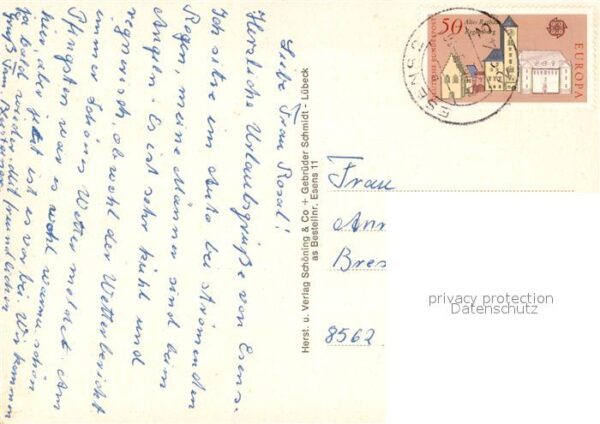 Liebe Frau Rosel!
Herzliche Urlaubsgrüße von Esens.
Ich sitze im Auto bei strömenden
Regen, meine Männer sind beim
Angeln. Es ist sehr kühl und
regnerisch, obwohl der Wetterbericht
immer schönes Wetter meldet. Am
Pfingsten war es wohl warm u. schön
hier, aber jetzt ist es vorbei. Wir kommen
ja bald wieder. Mit freundlichen
Gruß Fam.
Herst. u. Verlag Schöning & Co + Gebrüder Schmidt - Lübeck
as Bestellnr. Esens 11
50
Altes Rathaus
EUROPA
ESENS
Frau
Ann
Bres
8562
privacy protection
Datenschutz